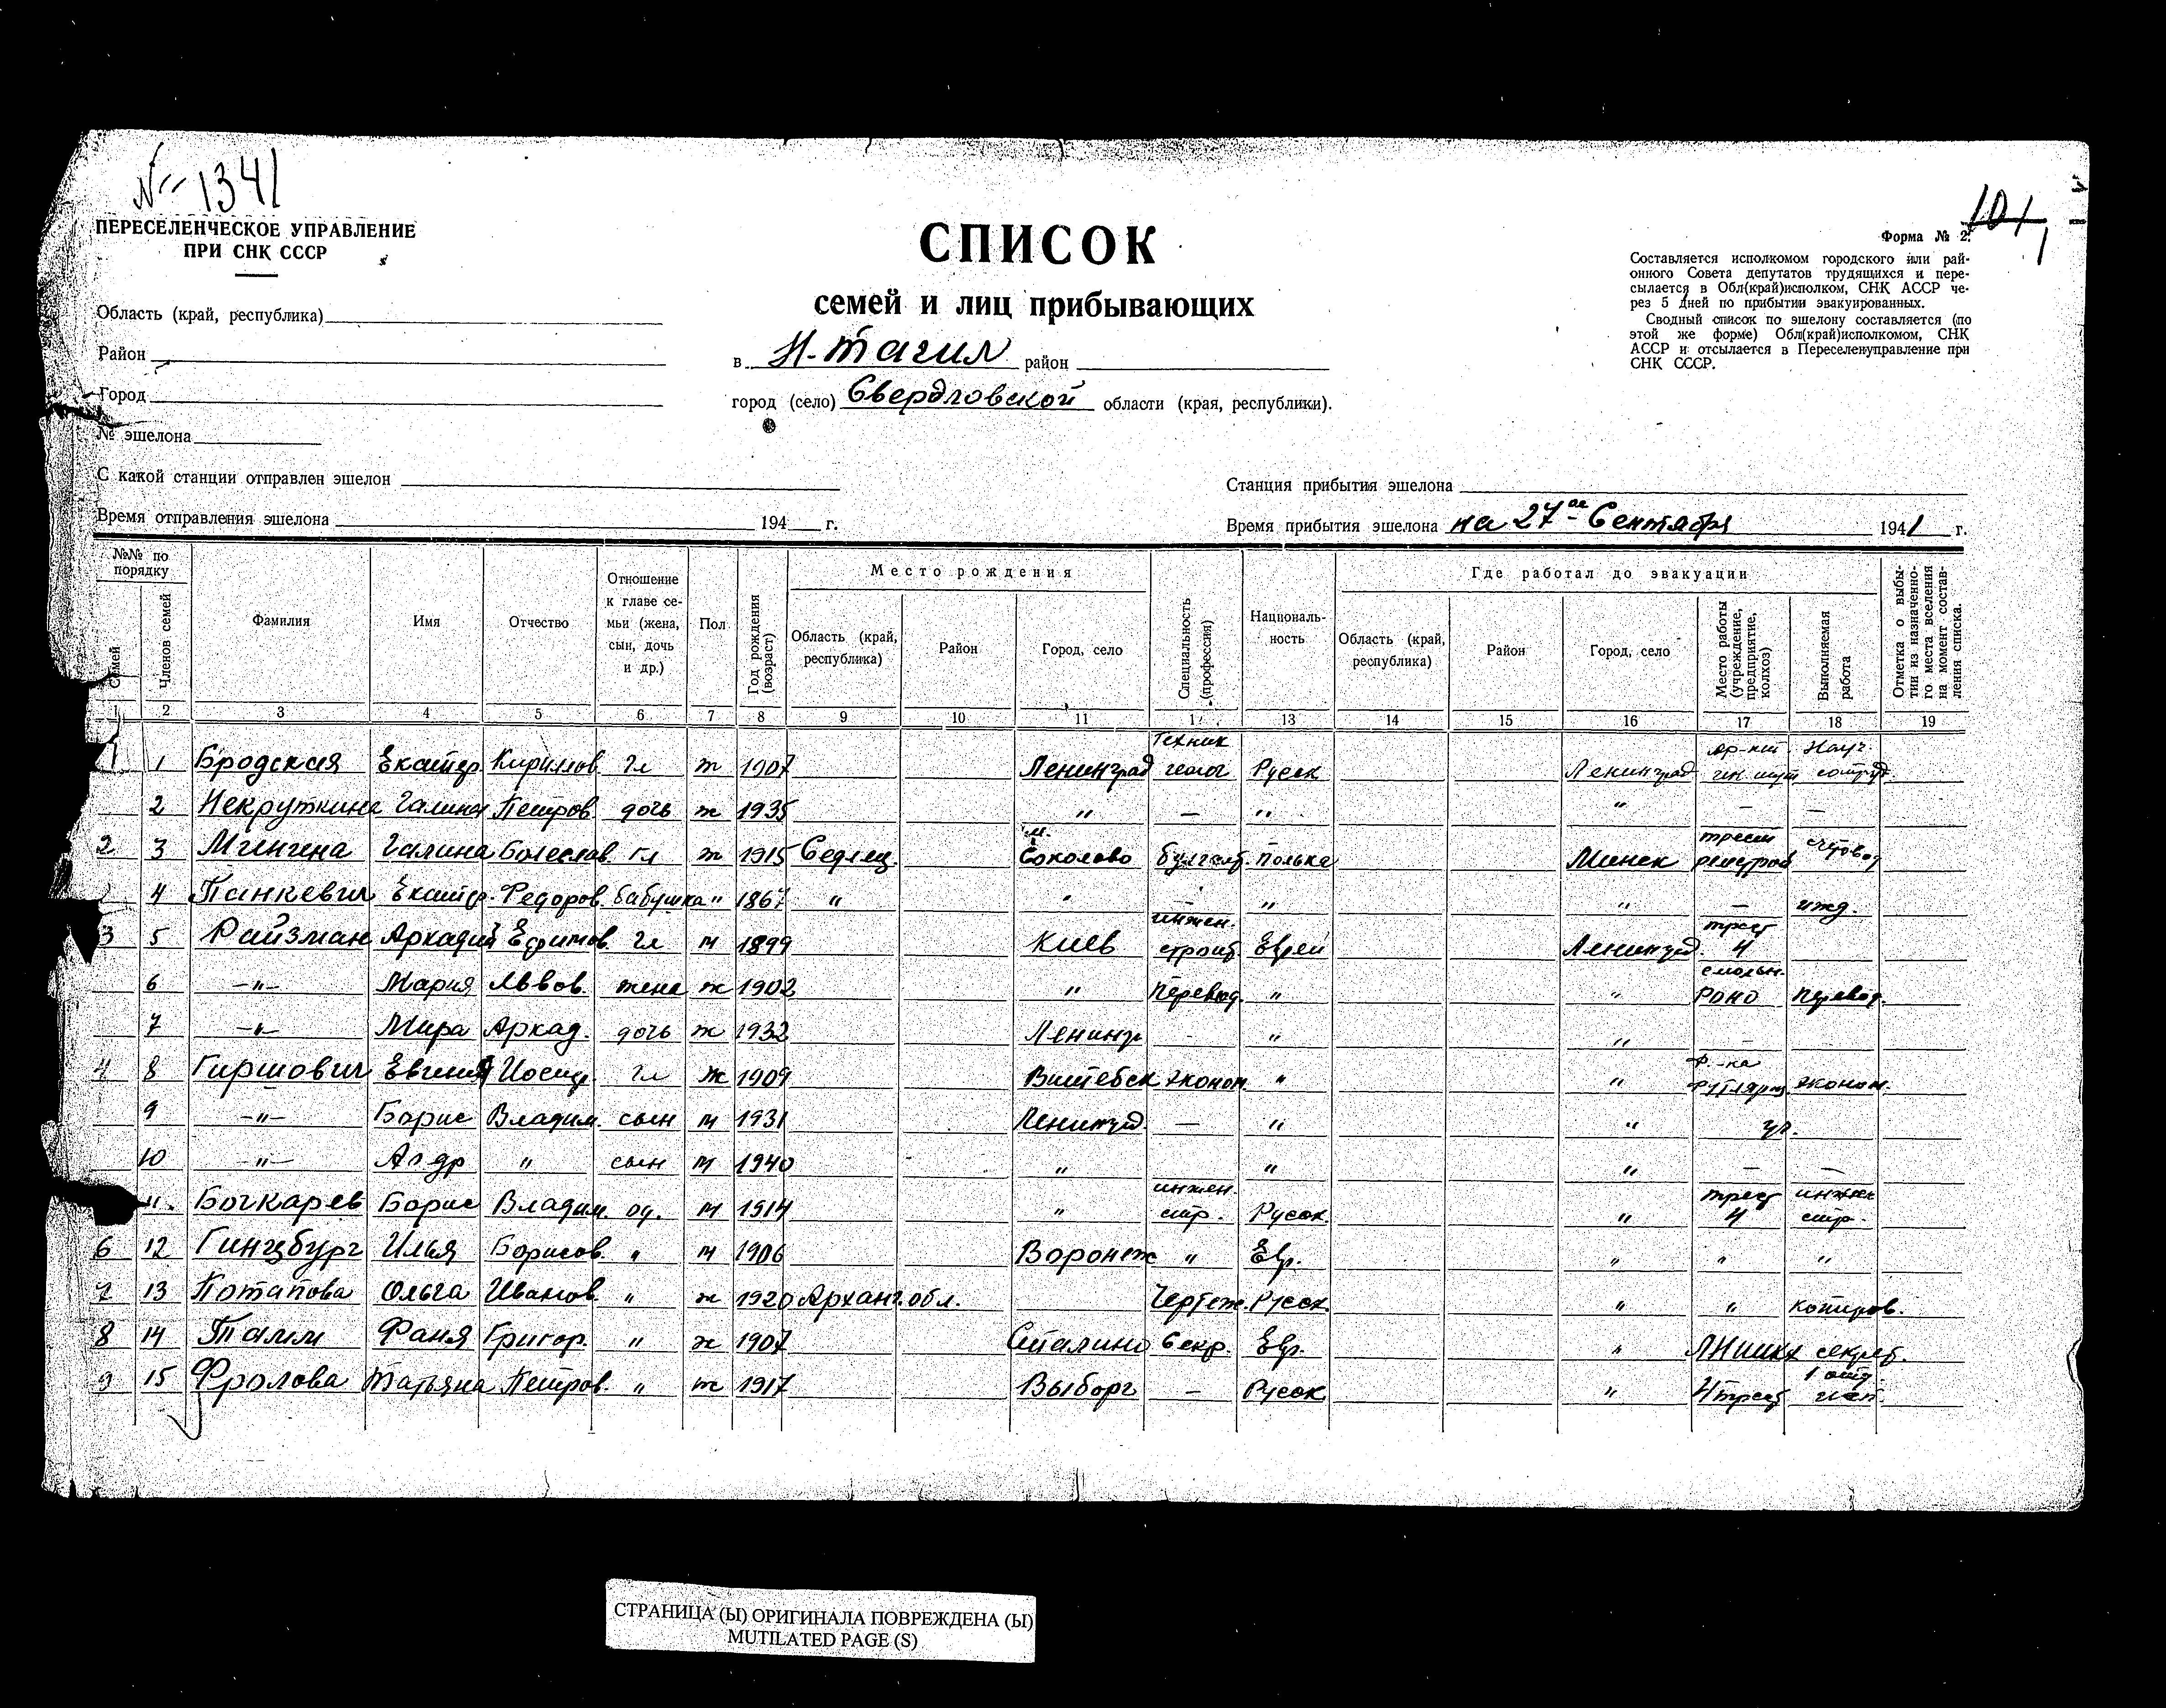 № 1341
ПЕРЕСЕЛЕНЧЕСКОЕ УПРАВЛЕНИЕ
ПРИ СНК СССР
Область (край, республика)
Район
Город
№ эшелона
С какой станции отправлен эшелон
Время отправления эшелона 194 г.
СПИСОК
семей и лиц прибывающих
в Н-Тагил район
город (село) Свердловской области (края, республики).
101
1
Форма № 2.
Составляется исполкомом городского или рай-
онного Совета депутатов трудящихся и пере-
сылается в Обл(край)исполком, СНК АССР че-
рез 5 дней по прибытии эвакуированных.
Сводный список по эшелону составляется (по
этой же форме) Обл(край)исполкомом, СНК
АССР и отсылается в Переселенуправление при
СНК СССР.
Станция прибытия эшелона
Время прибытия эшелона на 27ое Сентября 1941 г.
№№ по порядку
Семей
Членов семей
Фамилия
Имя
Отчество
Отношение к главе се-мьи (жена, сын, дочь и др.)
Пол
Год рождения (возраст)
Место рождения
Область (край, республика)
Район
Город, село
Специальность (профессия)
Националь-ность
Где работал до эвакуации
Область (край, республика)
Район
Город, село
Место работы (учреждение, предприятие, колхоз)
Выполняемая работа
Отметка о выбы-тии из назначенно-го места вселения на момент состав-ления списка.
1 2 3 4 5 6 7 8 9 10 11 1 13 14 15 16 17 18 19
1 1 Бродская Екатер. Кириллов. гл ж 1907 Ленинград Техник геолог Русск Ленинград научн. сотруд.
2 Некруткина Галина Петров. дочь ж 1935 " — " " — —
2 3 Галина Болеслав. гл ж 1915 Седлец. м. Соколово бухгалт. Полька Минск трест счетовод
4 Танкевич Екатер. Федоров. бабушка " 1867 " " — " " — ижд.
3 5 Райзман Аркадий Ефимов. гл м 1899 Киев инжен. строит. Еврей Ленинград. трест 4
6 —"— Мария Львов. жена ж 1902 " перевод. " " смольн. РОНО перевод.
7 —"— Мира Аркад. дочь ж 1932 Ленингр - " " -
4 8 Гиршович Евгения Иосиф. гл ж 1909 Витебск эконом. " " ф-ка эконом.
9 —"— Борис Владим. сын м 1931 Ленинград — " " уч.
10 —"— Ал-др " сын м 1940 " " " — —
11. Бочкарев Борис Владим. од. м 1914 " инжен. стр. Русск. " трест 4 инжен стр.
6 12 Гинзбург Илья Борисов. " м 1906 Воронеж " Евр. " " "
7 13 Потапова Ольга Иванов. " ж 1920 Арханг. обл. Чертеж. Русск. " " копиров.
8 14 Фаня Григор. " ж 1907 Сталино Секр. Евр. " секрет.
9 15 Фролова Татьяна Петров. " ж 1917 Выборг — Русск " 4 трест
СТРАНИЦА (Ы) ОРИГИНАЛА ПОВРЕЖДЕНА (Ы)
MUTILATED PAGE (S)